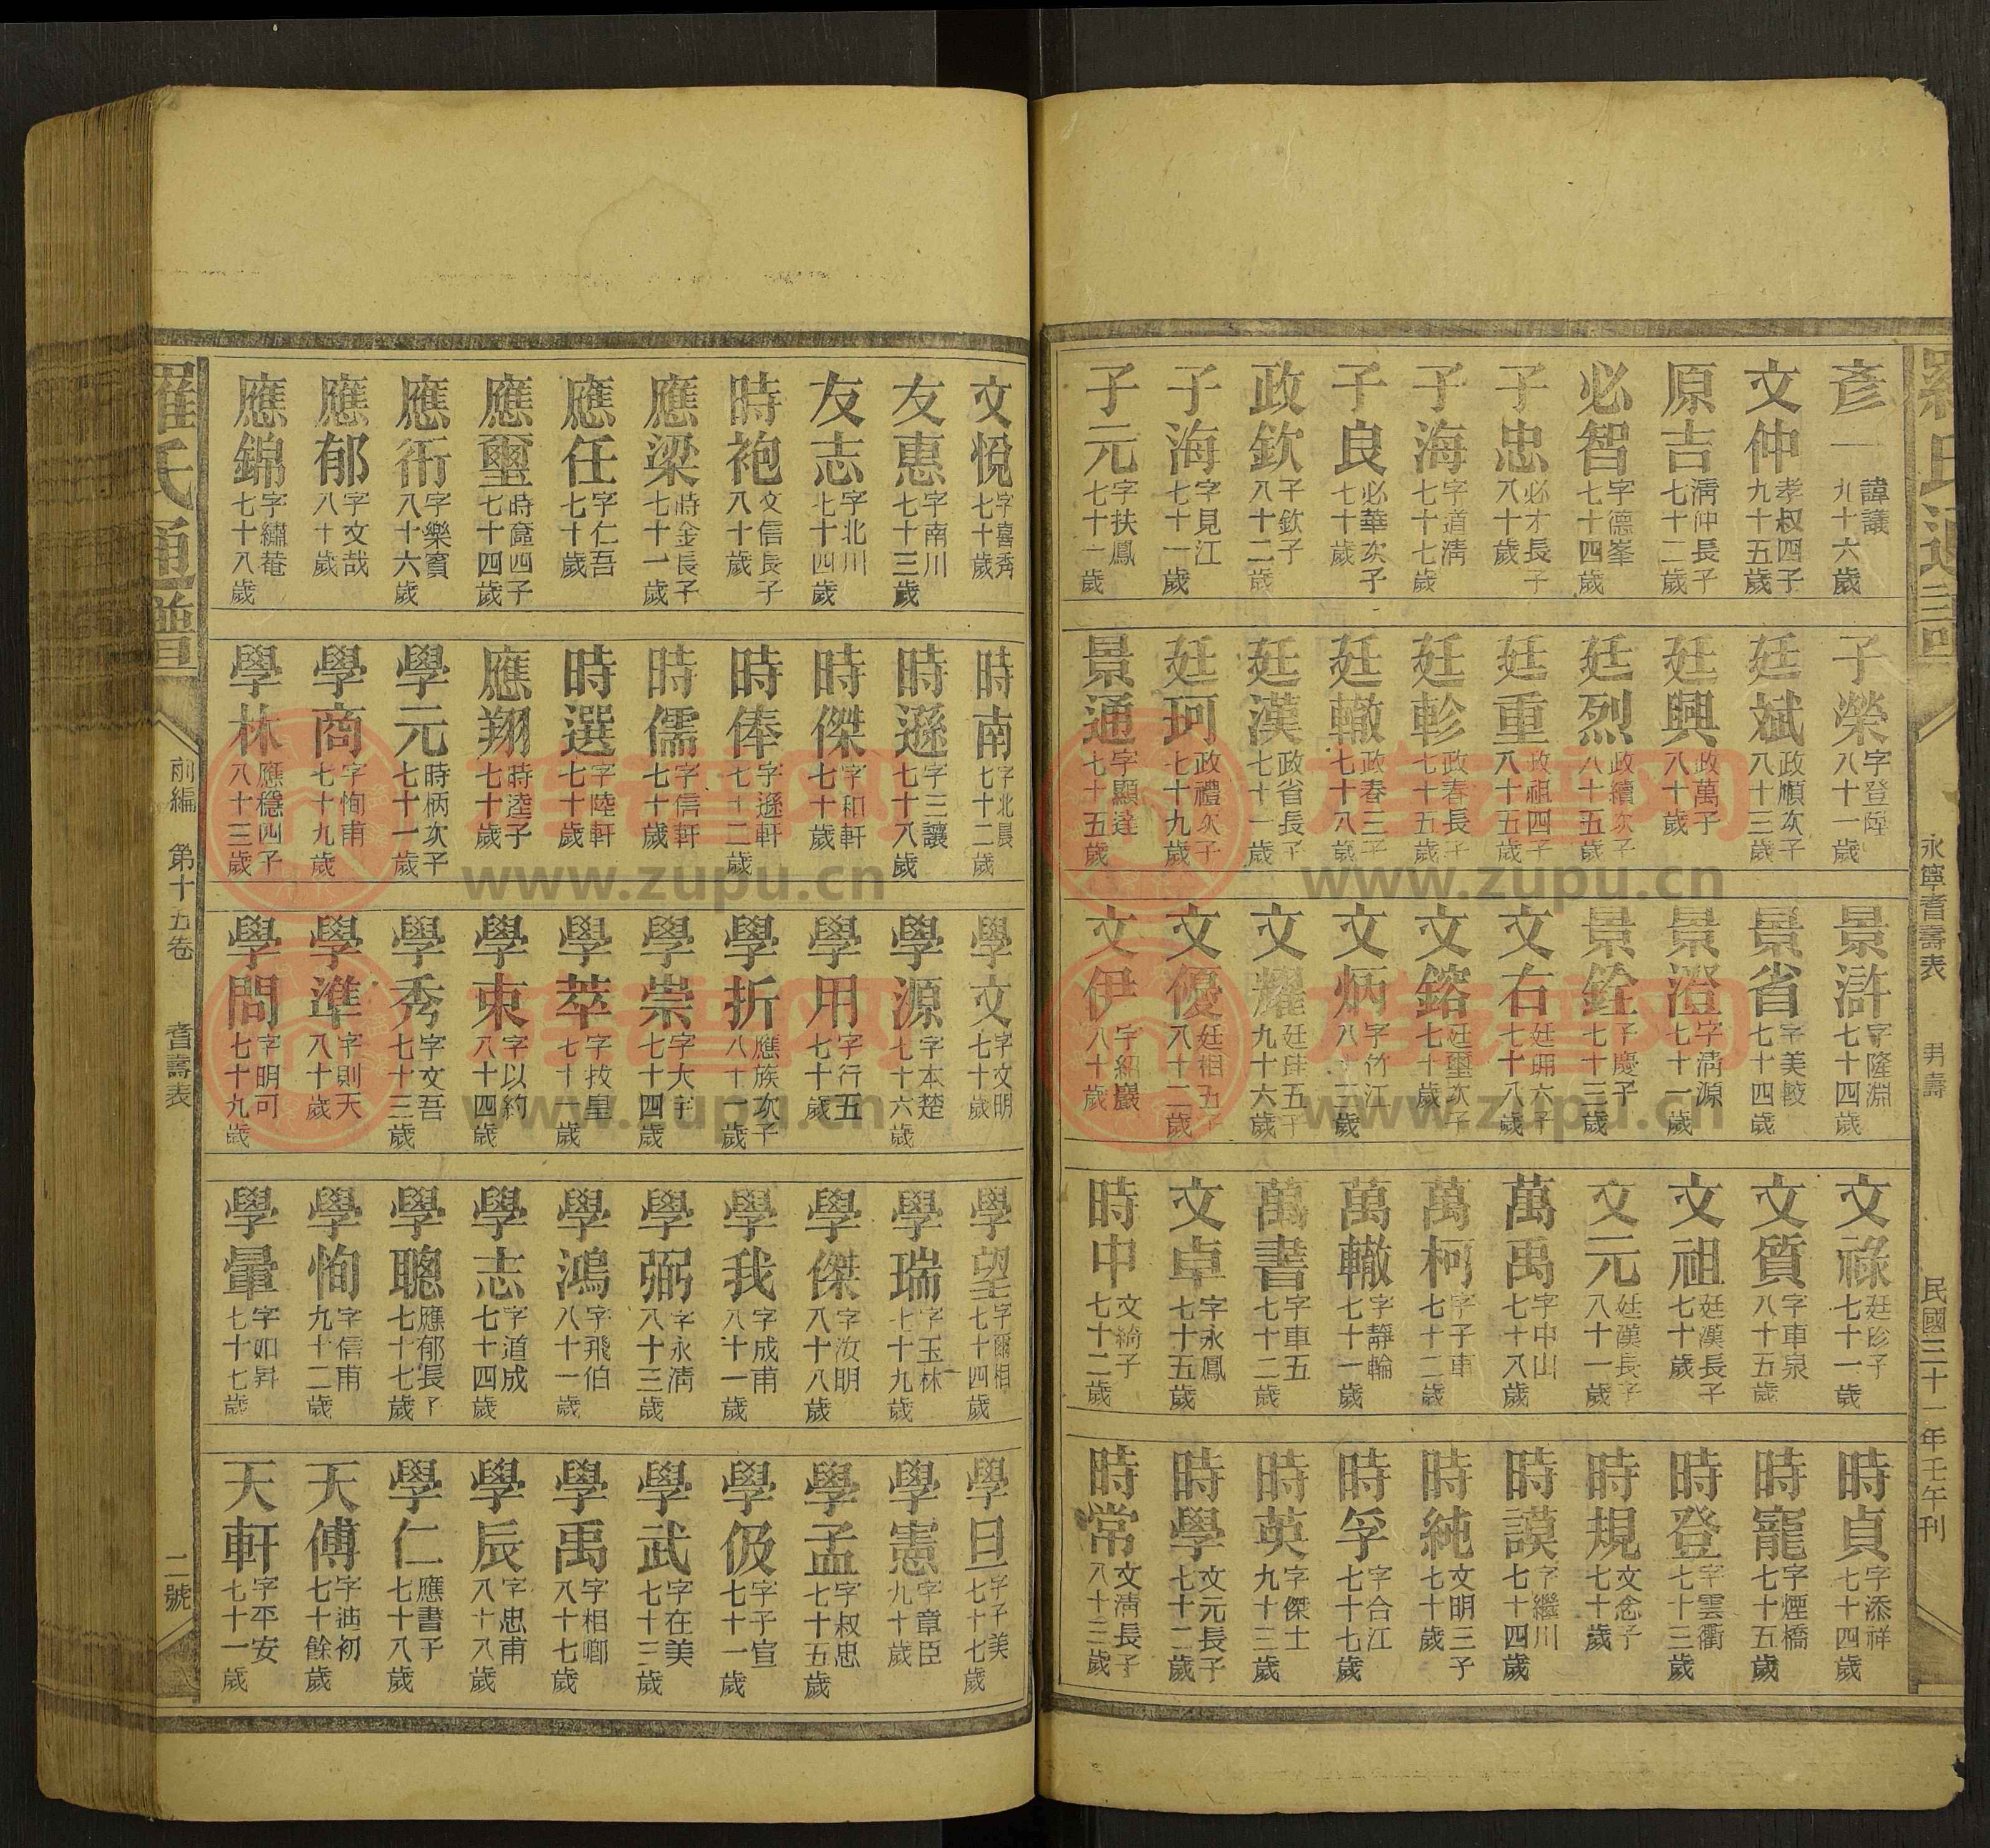 羅氏通譜
永寧耆壽表
男壽
民國三十一年壬午刊
彥一 諱議 九十六歲
文仲 孝叔四子 九十五歲
原吉 淸仲長子 七十二歲
必智 字德峯 七十四歲
子忠 必才長子 八十歲
子海 字道淸 七十七歲
子良 必華次子 七十歲
政欽 子欽子 八十二歲
子海 字見江 七十一歲
子元 字扶鳳 七十一歲
子榮 字登陞 八十一歲
廷斌 政順次子 八十三歲
廷興 政萬子 八十歲
廷烈 政續次子 八十五歲
廷重 政祖四子 八十五歲
廷軫 政春長子 七十五歲
廷轍 政春三子 七十八歲
廷漢 政省長子 七十一歲
廷珂 政禮次子 七十九歲
景通 字顯達 七十五歲
景滸 字隆淵 七十四歲
景省 字美毅 七十四歲
景澄 字淸源 七十一歲
景銓 子慶子 七十三歲
文右 廷珊六子 七十八歲
文鎔 廷璽次子 七十歲
文炳 字竹江 八十三歲
文耀 廷陸五子 九十六歲
文優 廷相五子 八十二歲
文伊 字紹巖 八十歲
文祿 廷珍子 七十一歲
文質 字車泉 八十五歲
文祖 廷漢長子 七十歲
文元 廷漢長子 八十一歲
萬禹 字中山 七十八歲
萬柯 字子車 七十二歲
萬轍 字靜輪 七十一歲
萬書 字車五 七十二歲
文卓 字永鳳 七十五歲
時中 文綺子 七十二歲
時貞 字添祥 七十四歲
時寵 字煙橋 七十五歲
時登 字雲衢 七十三歲
時規 文念子 七十歲
時謨 字繼川 七十四歲
時純 文明三子 七十歲
時孚 字合江 七十七歲
時英 字傑士 九十三歲
時學 文元長子 七十二歲
時常 文淸長子 八十三歲
文悅 字喜秀 七十歲
友惠 字南川 七十三歲
友志 字北川 七十四歲
時袍 文信長子 八十歲
應梁 時金長子 七十一歲
應任 字仁吾 七十歲
應璽 時寵四子 七十四歲
應衎 字樂賓 八十六歲
應郁 字文哉 八十歲
應錦 字繡菴 七十八歲
時南 字北晨 七十二歲
時遜 字三讓 七十八歲
時傑 字和軒 七十歲
時俸 字遜軒 七十二歲
時儒 字信軒 七十歲
時選 字陸軒 七十歲
應翔 時逵子 七十歲
學元 時柄次子 七十一歲
學商 字恂甫 七十九歲
學林 應穩四子 八十三歲
學文 字文明 七十歲
學源 字本楚 七十六歲
學用 字行五 七十歲
學折 應族次子 八十一歲
學崇 字大宇 七十四歲
學萃 字拔皇 七十歲
學束 字以約 八十四歲
學秀 字文吾 七十三歲
學準 字則天 八十歲
學問 字明可 七十九歲
學望 字爾相 七十四歲
學瑞 字玉林 七十九歲
學傑 字汝明 八十八歲
學我 字成甫 八十一歲
學弼 字永淸 八十三歲
學鴻 字飛伯 八十一歲
學志 字道成 七十四歲
學聰 應郁長子 七十七歲
學恂 字信甫 九十二歲
學暈 字如昇 七十七歲
學旦 字子美 七十七歲
學憲 字章臣 九十歲
學孟 字叔忠 七十五歲
學伋 字子宣 七十一歲
學武 字在美 七十三歲
學禹 字相鄉 八十七歲
學辰 字忠甫 八十八歲
學仁 應書子 七十八歲
天傅 字油初 七十餘歲
天軒 字平安 七十一歲
羅氏通譜
前編 第十五卷 耆壽表 二號
旌谱网
www.zupu.cn
旌谱网
www.zupu.cn
旌谱网
www.zupu.cn
旌谱网
www.zupu.cn